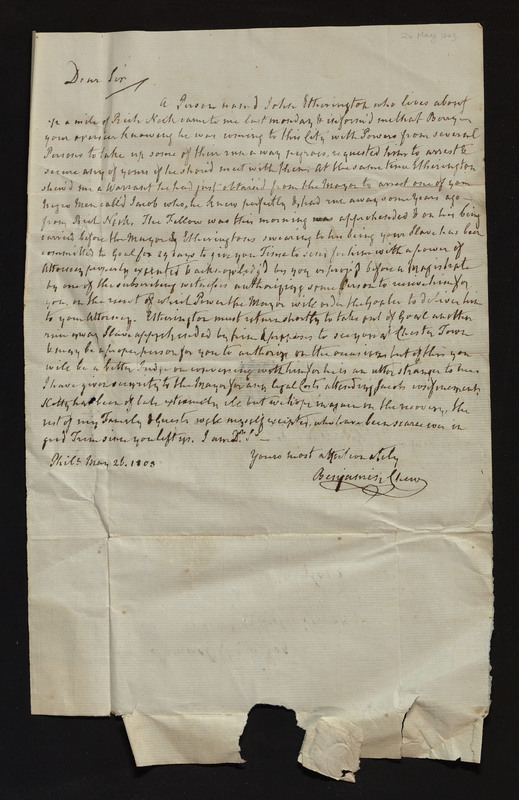 26 May 1803
Dear Sir
A Person named John Etherington who lives about
a mile of Rich Neck came to me last monday & inform'd me that
your overseer knowing he was coming to this City with Powers from several
Persons to take up some of their run a way negroes, requested him to arrest &
secure any of yours if he should meet with them. At the same time Etherington
shew'd me a Warrant he had just obtained from the Mayor to arrest one of your
Negro Men called Jacob who, he knew perfectly & had run away some years ago
from Rich Neck. The Fellow was this morning apprehended & on his being
carried before the Mayor & Etheringtons swearing to his being your Slave has been
committed to Goal for days to give you Time to send for him with a power of
Attorney properly executed & acknowledg'd by you or prov'd before a Magistrate
by one of the subscribing witnesses authorizing some Person to receive him for
you, on the receit of which Power the Mayor will order the Goaler to deliver him
to your Attorney. Etherington must return shortly to take out of Goal another
run away Slave apprehended by him & proposes to see you at Chester Town
& may be a proper person for you to authorize on the occasion but of this you
will be a better Judge on conversing with him for he is an utter stranger to me
I have given security to the Mayor for any legal Costs attending Jacobs confinement
Kitty has been of late extremely ill but we hope is again on the recovery. the
rest of my Family & Guests well myself excepted, who have been scarce ever in
good Trim since you left us. I am Dr Sr
Yours most affectionately
Benjamin Chew
Phila. May 26. 1803